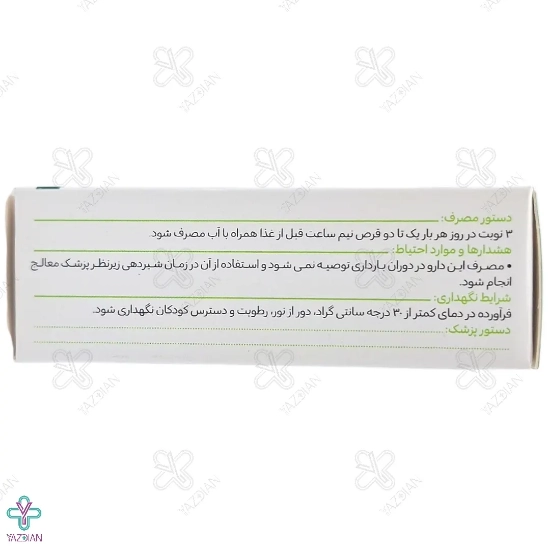 دستور مصرف:
۳ نوبت در روز هر بار یک تا دو قرص نیم ساعت قبل از غذا همراه با آب مصرف شود.
هشدارها و موارد احتیاط:
• مصرف این دارو در دوران بارداری توصیه نمی شود و استفاده از آن در زمان شیردهی زیر نظر پزشک معالج
انجام شود.
شرایط نگهداری:
فرآورده در دمای کمتر از ۳۰ درجه سانتی گراد، دور از نور، رطوبت و دسترس کودکان نگهداری شود.
دستور پزشک:
YAZDIAN